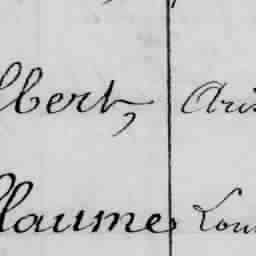 lbert, Aris
llaume Loui